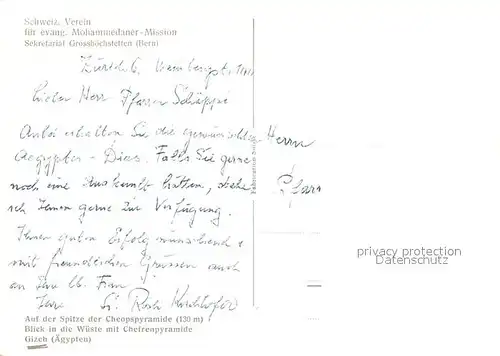 Schweiz. Verein
für evang. Mohammedaner-Mission
Sekretariat Grosshöchstetten (Bern)
Zürich 6,
Lieber Herr Pfarrer Schäppi
Anbei erhalten Sie die gewünschten
Aegypten-Dias. Falls Sie gerne
noch eine Auskunft hätten, stehe
ich Ihnen gerne zur Verfügung.
Ihnen guten Erfolg wünschend
mit freundlichen Grüssen auch
an Ihre lb. Frau
Ihre
Auf der Spitze der Cheopspyramide (130 m)
Blick in die Wüste mit Chefrenpyramide
Gizeh (Ägypten)
Herrn
Pfarr
privacy protection
Datenschutz